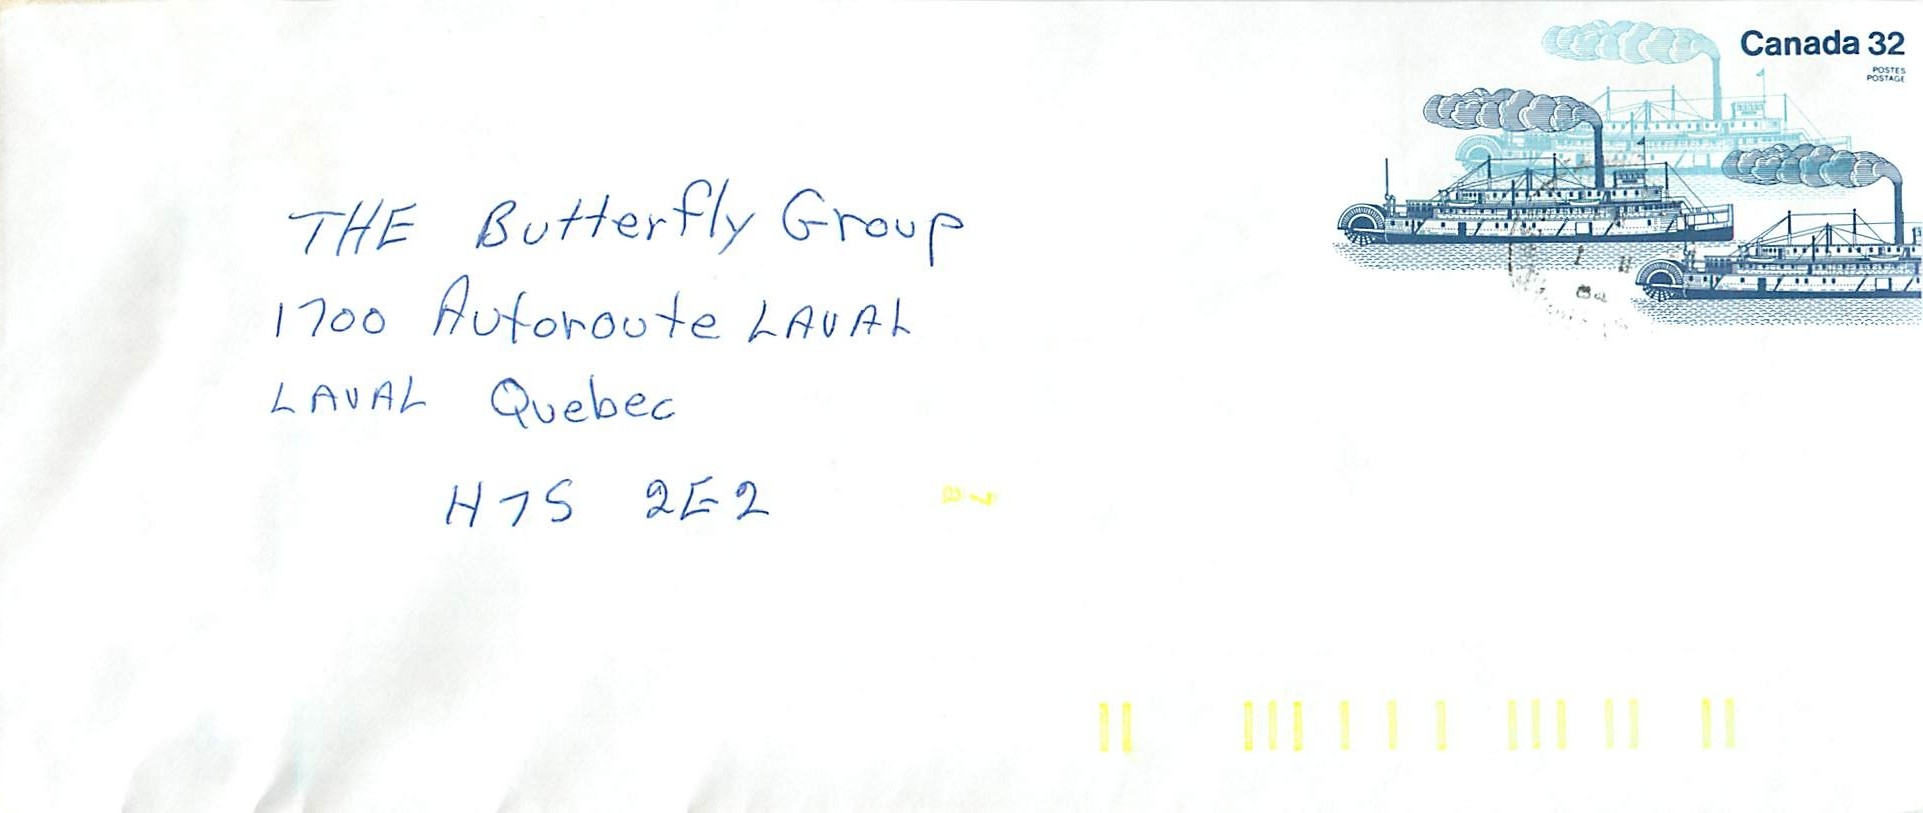 Canada 32
POSTES
POSTAGE
THE Butterfly Group
1700 Autoroute LAVAL
LAVAL Quebec
H7S 2E2